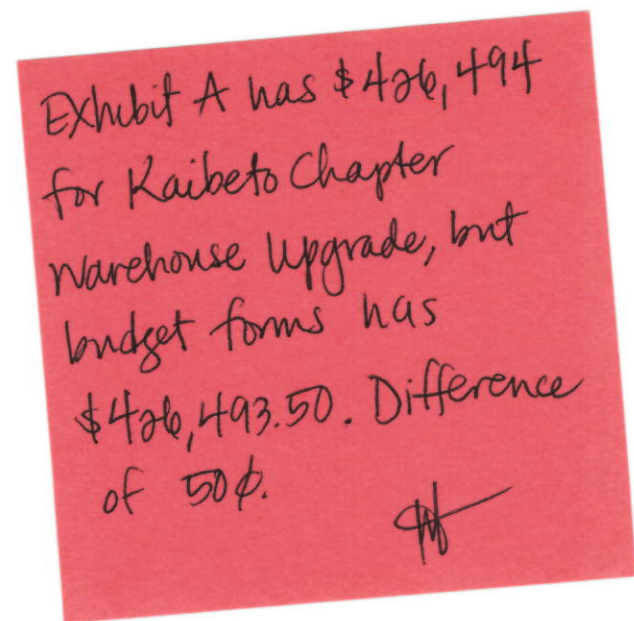 Exhibit A has $426,494
for Kaibeto Chapter
Warehouse Upgrade, but
budget forms has
$426,493.50. Difference
of 50¢.